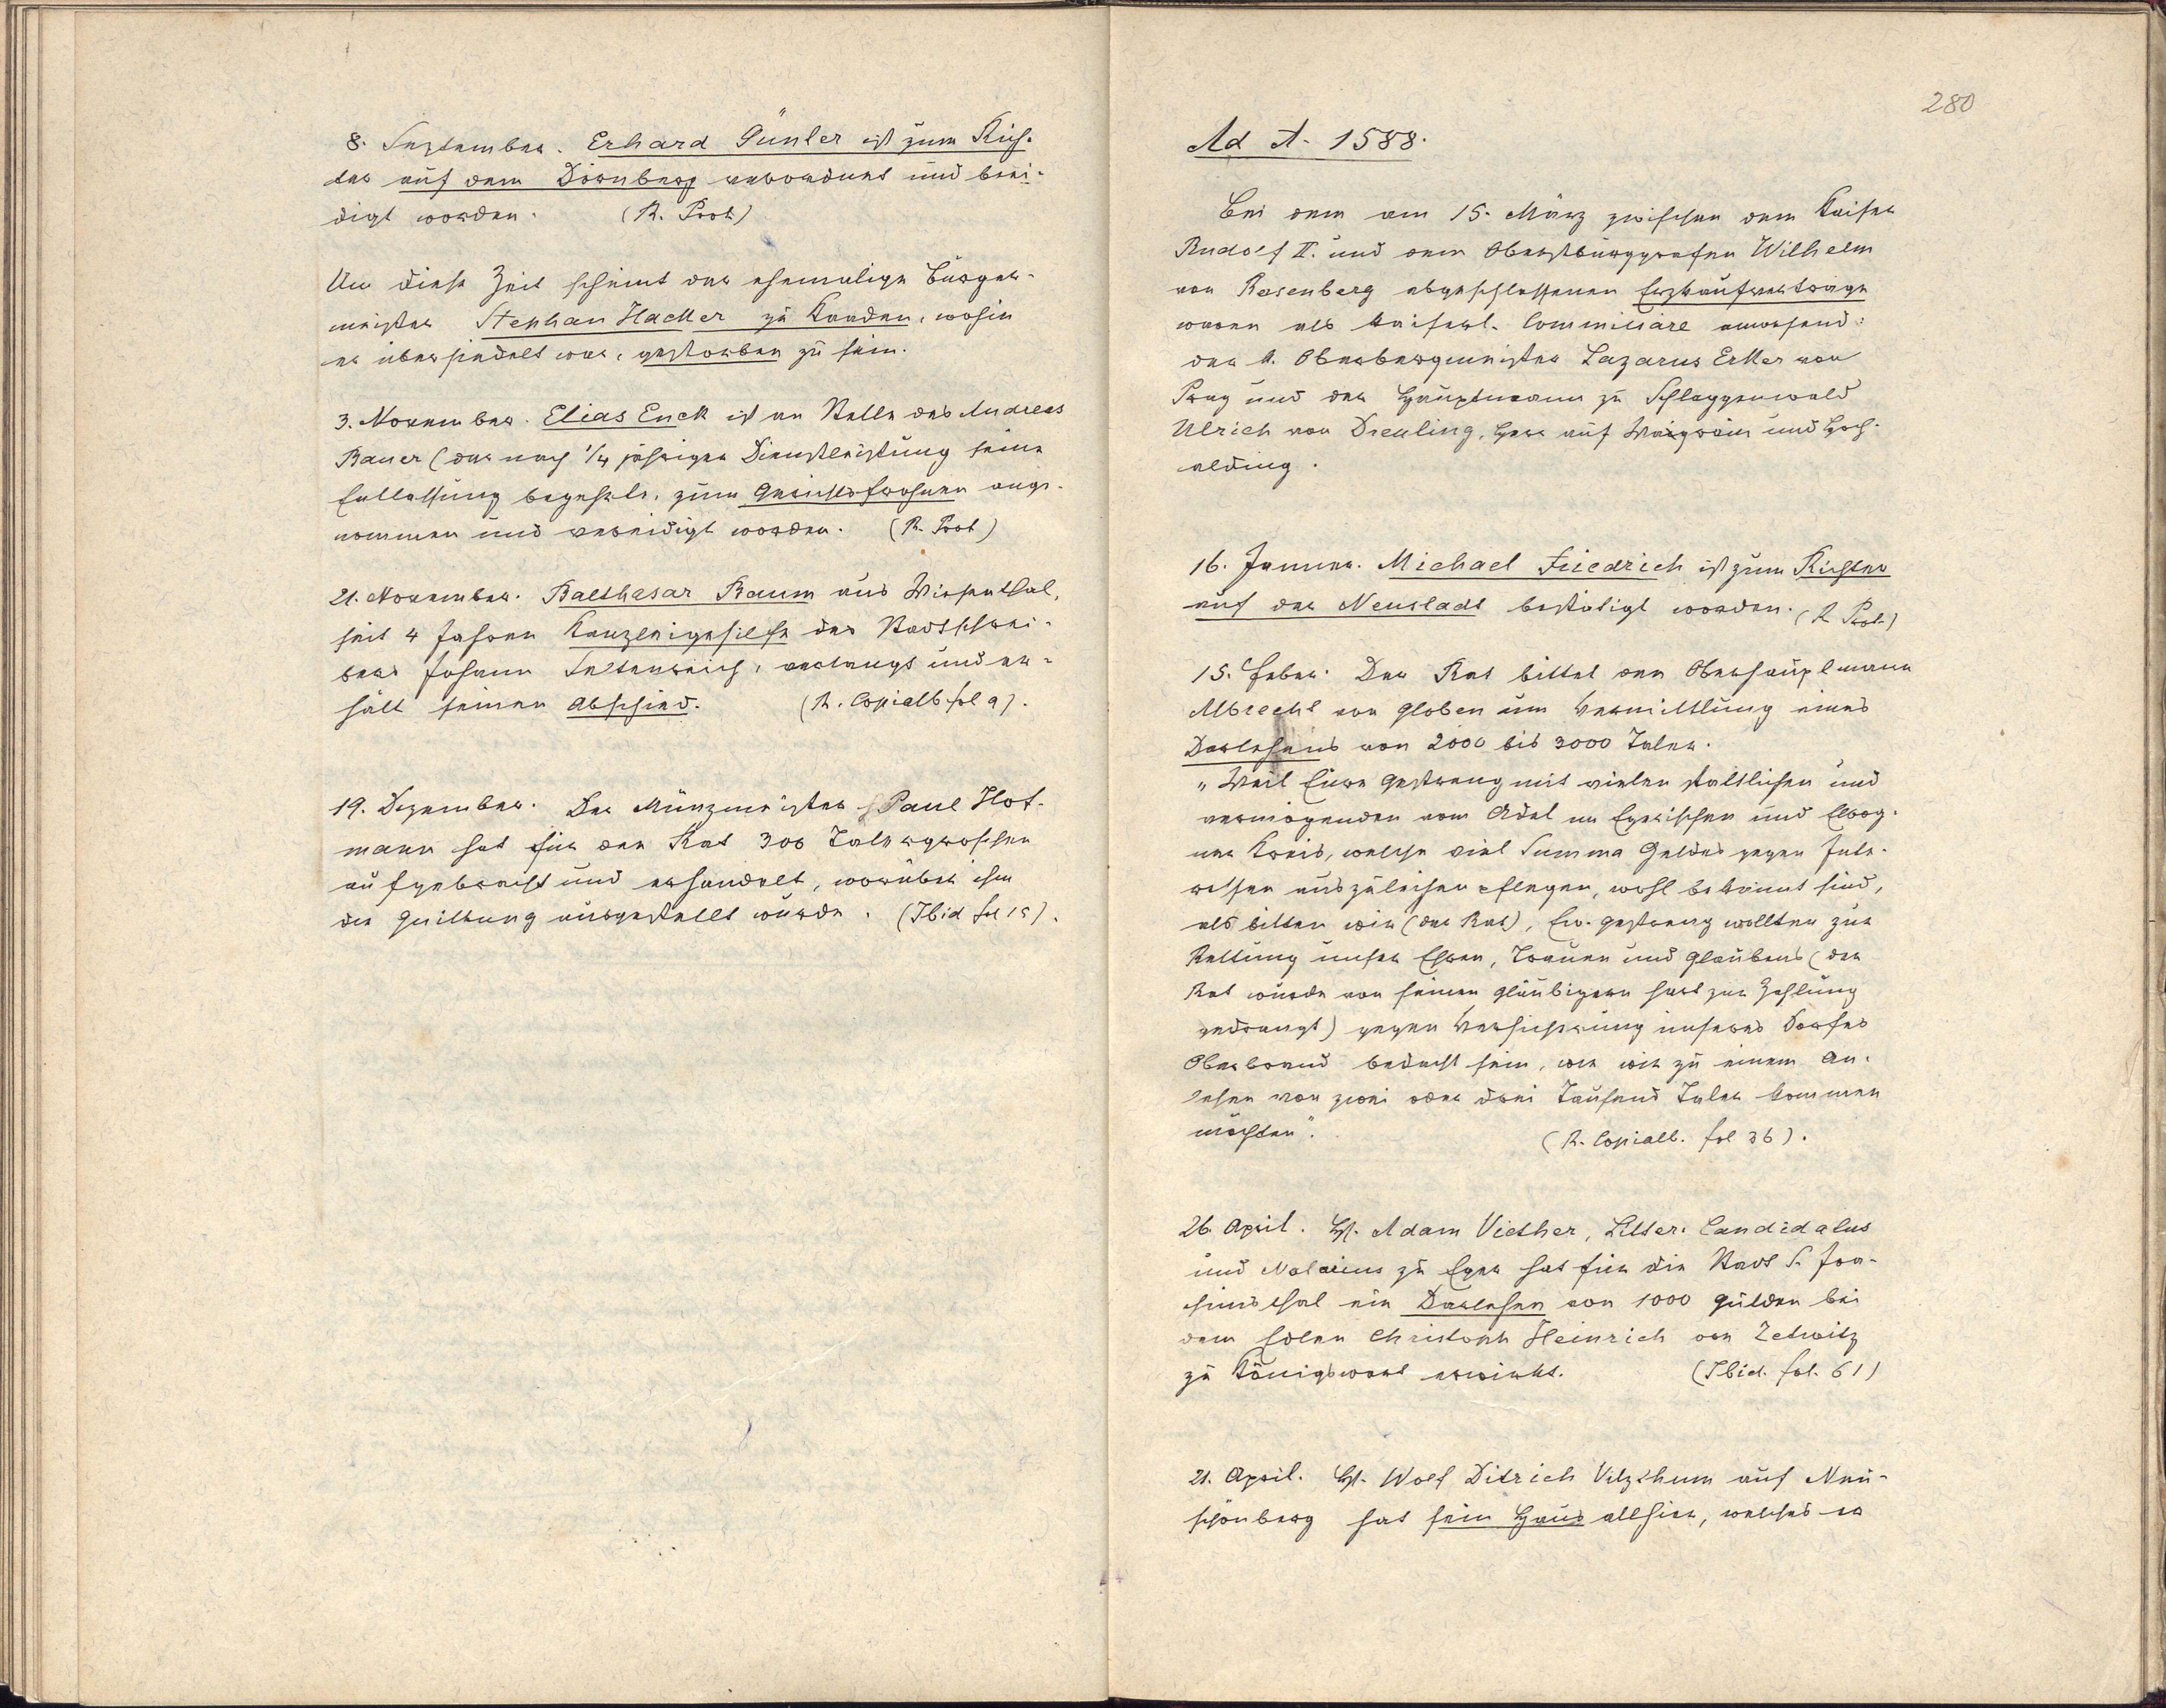 8. September. Erhard Günler ist zum Rich-
ter auf dem Dürnberg verordnet und beei-
digt worden. (R. Prot)
Um diese Zeit scheint der ehemalige Bürger-
meister Stephan Hacker zu Kaaden, wohin
er übersiedelt war, gestorben zu sein.
3. November. Elias Enck ist an Stelle des Andreas
Bauer (der nach 1/4 jähriger Dienstleistung seine
Entlassung begehrte, zum Gerichtsfrohnen ange-
nommen und vereidigt worden. (R. Prot)
21. November. Balthasar Baum aus Wiesenthal,
seit 4 Jahren Kanzleigehilfe des Stadtschrei-
bers Johann Seltenreich, verlangt und er-
hält seinen Abschied. (R. Copialb fol 9).
19. Dezember. Der Münzmeister Paul Hof-
mann hat für den Rat 300 Talergroschen
aufgebracht und erhandelt, worüber ihm
die Quittung ausgestellt wurde. (Ibid fol 15).
280
Ad A. 1588.
Bei dem am 15. März zwischen dem Kaiser
Rudolf II. und dem Oberstburggrafen Wilhelm
von Rosenberg abgeschlossenen Erzkaufvertrage
waren als kaiserl. Commissäre anwesend:
der k. Oberbergmeister Lazarus Erker von
Prag und der Hauptmann zu Schlaggenwald
Ulrich von Dreuling, Herr auf und Hoch-
alding.
16. Jänner. Michael Friedrich ist zum Richter
auf der Neustadt bestätigt worden. (R Prot.)
15. Feber. Der Rat bittet den Oberhauptmann
Albrecht von Globen um Vermittlung eines
Darlehens von 2000 bis 3000 Taler.
"Weil Eure Gestreng mit vielen stattlichen und
vermögenden vom Adel im Egerischen und Elbog-
ner Kreis, welche viel Summa Geldes gegen Inte-
ressen auszuleihen pflegen, wohl bekannt sind,
als bitten wir (der Rat), Ew. Gestreng wollten zur
Rettung unser Ehren, Trauen und Glaubens (der
Rat wurde von seinen Gläubigern hart zur Zahlung
gedrängt) gegen Versicherung unseres Dorfes
Oberbrand bedacht sein, wie wir zu einem An-
lehen von zwei oder drei Tausend Taler kommen
möchten". (R. Copialb. fol 36).
26. April. H. Adam Viether, Litter. Candidatus
und Notarius zu Eger hat für die Stadt S. Joa-
chimsthal ein Darlehen von 1000 Gulden bei
dem Edlen Christoph Heinrich von Zetwitz
zu Königswart erwirkt. (Ibid. fol. 61)
21. April. H. Wolf Ditrich Vitzthum auf Neu-
schönberg hat sein Haus allhier, welches er